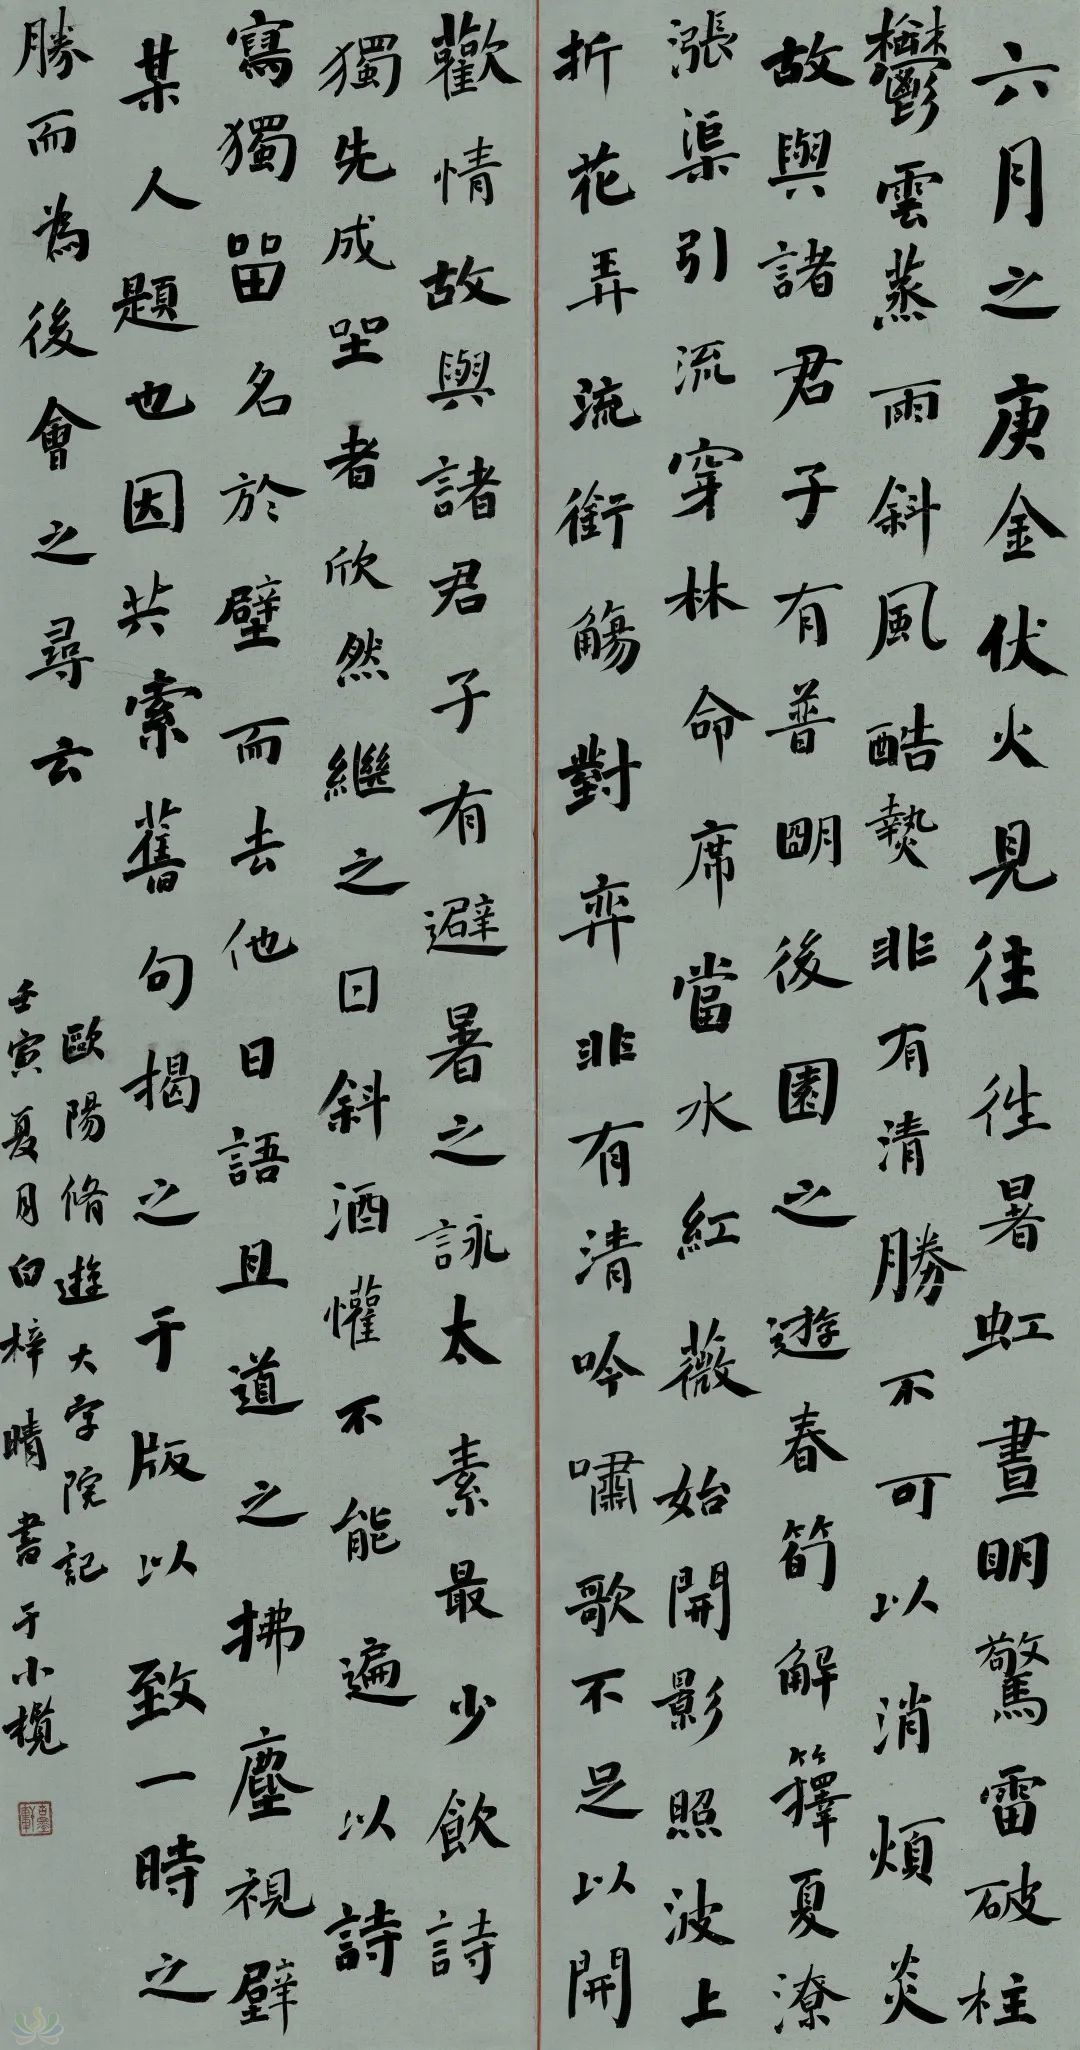 六月之庚金伏火見往往暑虹晝明驚雷破柱
鬱雲蒸雨斜風酷熱非有清勝不可以消煩炎
故與諸君子有普明後園之遊春筍解籜夏潦
漲渠引流穿林命席當水紅薇始開影照波上
折花弄流銜觴對弈非有清吟嘯歌不足以開
歡情故與諸君子有避暑之詠太素最少飲詩
獨先成坐者欣然繼之日斜酒懽不能遍以詩
寫獨留名於壁而去他日語且道之拂塵視壁
某人題也因共索舊句揭之于版以致一時之
勝而為後會之尋云
歐陽脩遊大字院記
壬寅夏月白梓晴書于小欖